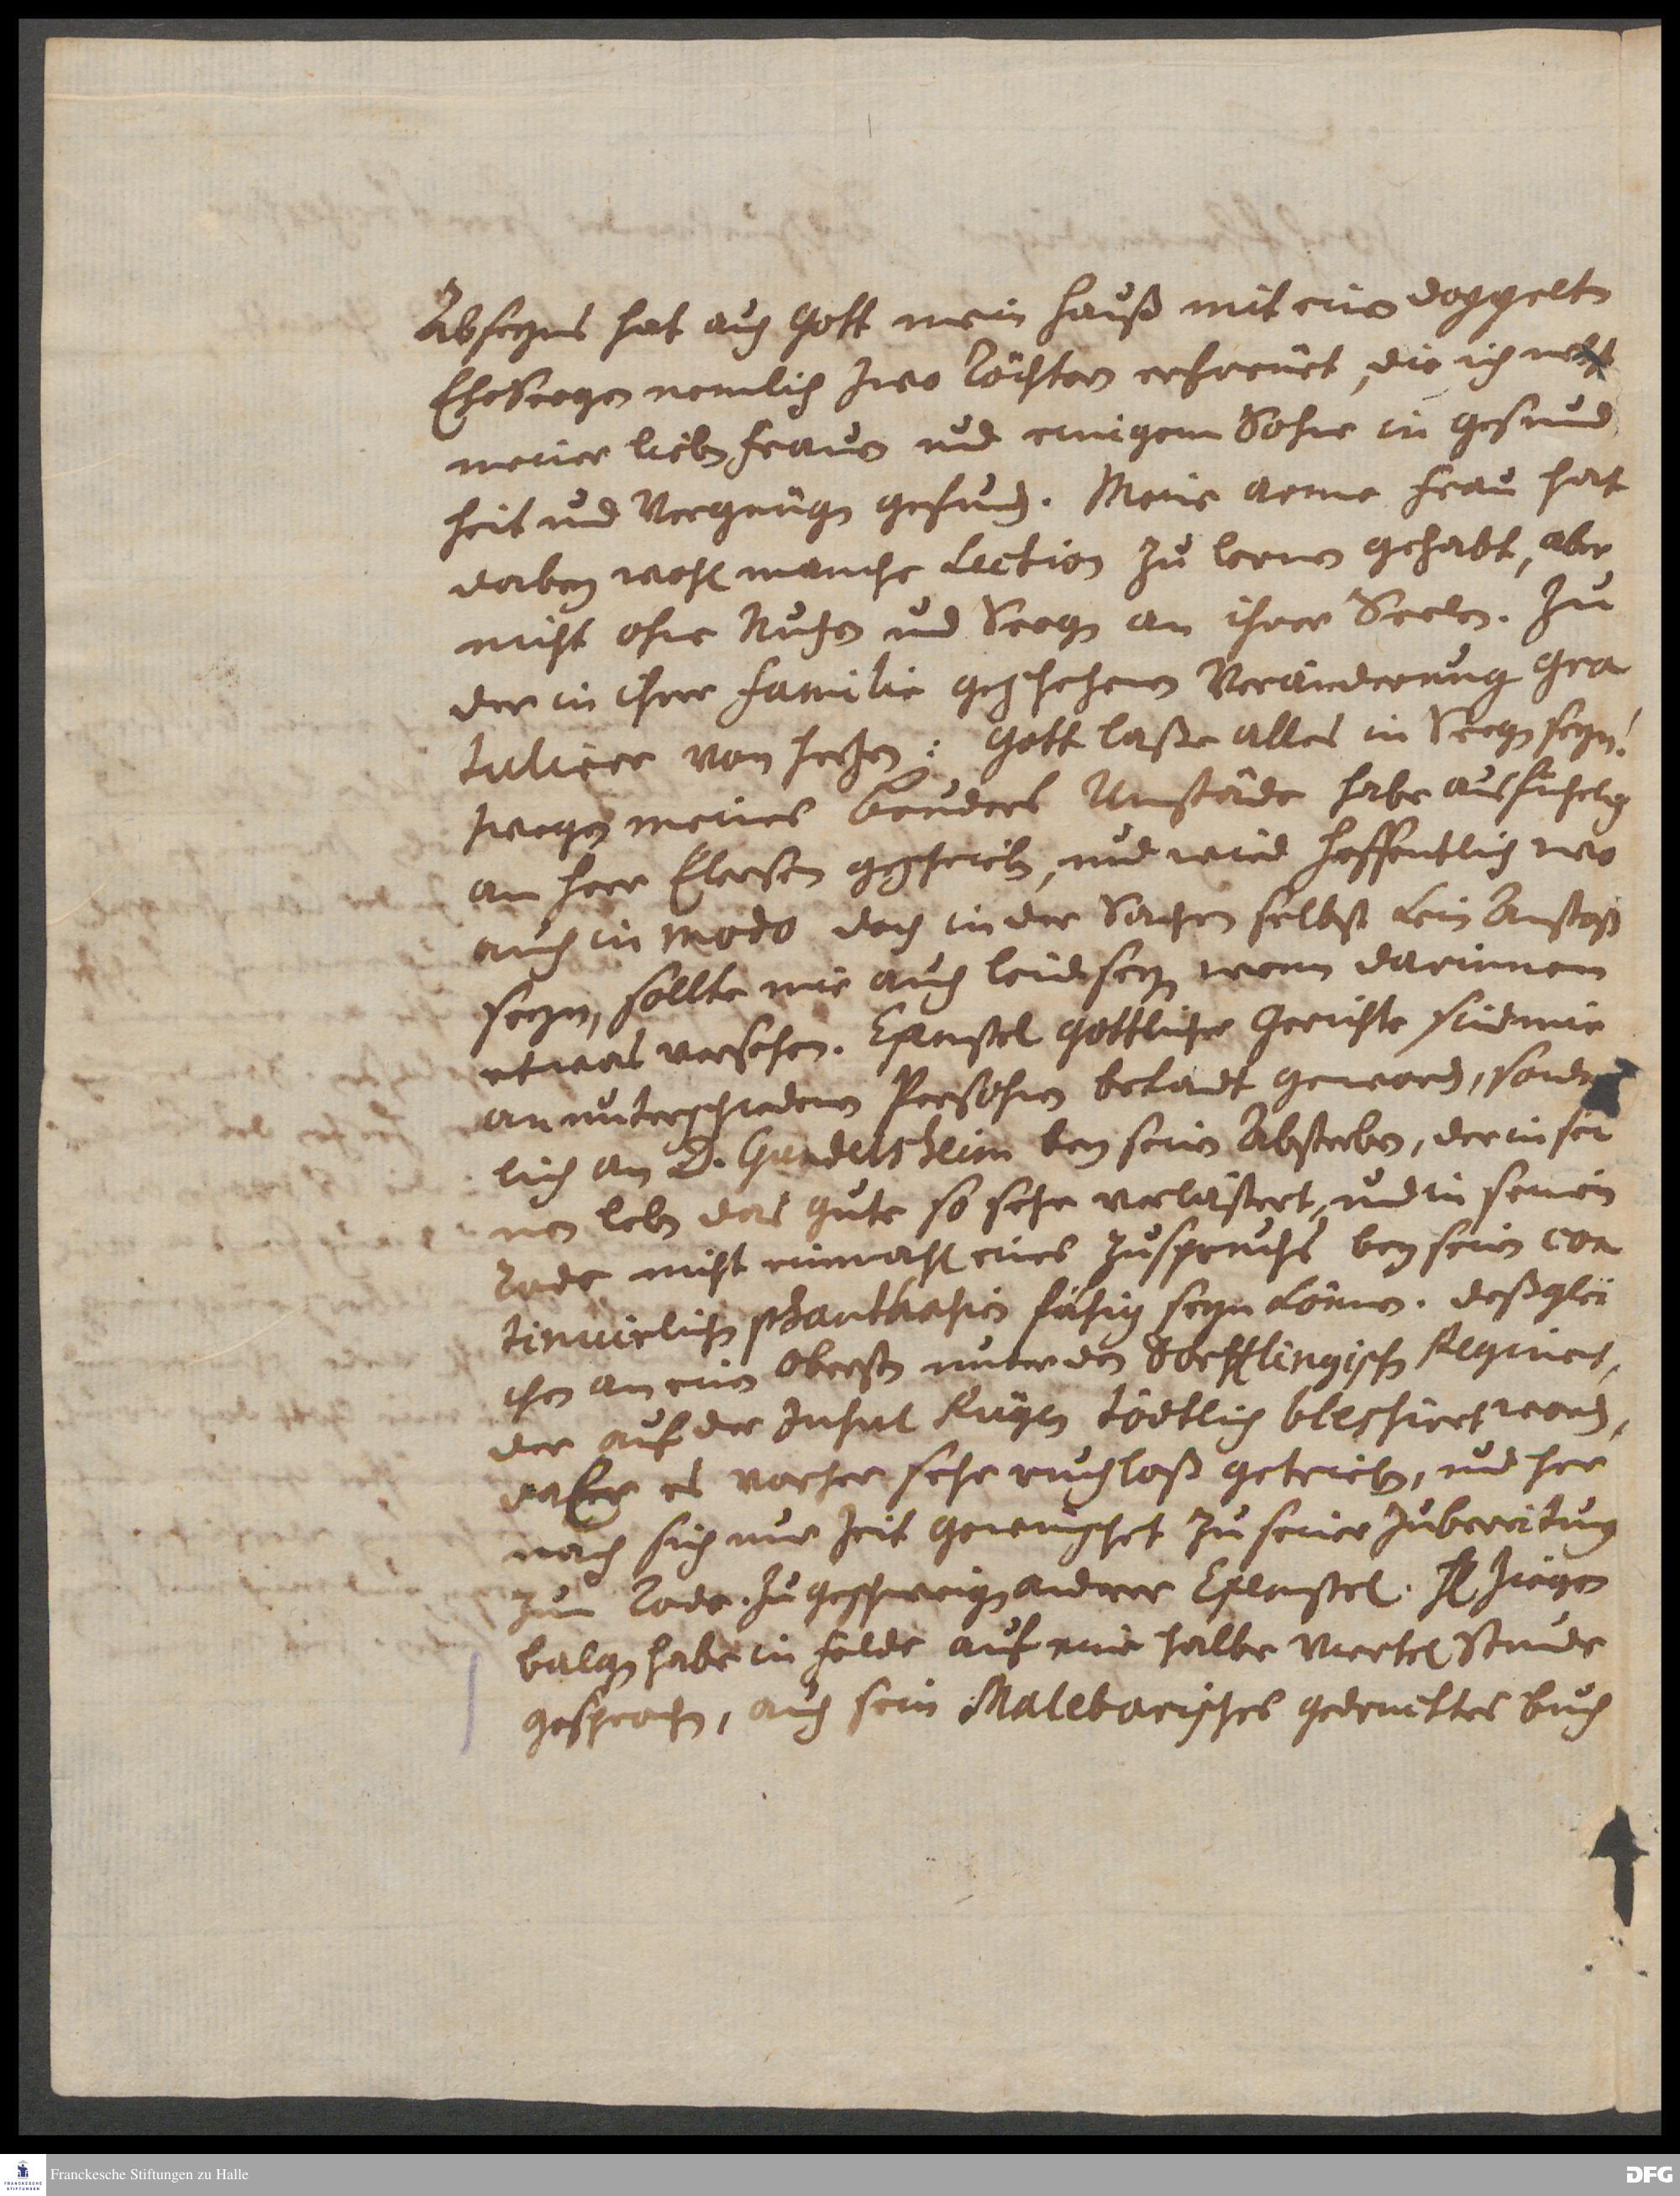 Abseyns hat auch Gott mein Hauß mit einen doppelten
EheSeegen nemlich zwo Töchtern erfreuet, die ich nebst
meiner lieben Frauen und einigem Sohne in Gesund
heit und Vergnügen gefunden. Meine arme Frau hat
dabey wohl manche Lection zu lernen gehabt, aber
nicht ohne Nutzen und Seegen an ihrer Seelen. Zu
der in ihrer Familie geschehenen Veränderung gra
tuliere von Hertzen: Gott laße alles in Seegen seyn!
Wegen meines Bruders Umstände habe ausführlich
an Herr Elersen geschrieben, und wird hoffentlich wo
auch in modo doch in der Sachen selbst kein Anstoß
seyn, sollte mir auch leid seyn, wenn darinnen
etwas versehen. Exempel göttlicher Gerichte sind mir
an unterschiedenen Persohnen bekandt geworden, sonder
lich an D. Gundelsheim bey seinen Absterben, der in sei
nen Leben das Gute so sehr verlästert, und in seinem
Tode nicht einmahl eines Zuspruchs bey seinen con
tinuirlichen phanthasien fähig seyn können. Deßglei
chen an einen Obersten unter den Dörfflingischen Regiment,
der auf der Insul Rügen tödtlich blessiert worden,
da Er es vorher sehr ruchloß getrieben, und her
nach sich nur Zeit gewünschet zu seiner Zubereitung
zum Tode. Zu geschweigen anderer Exempel. H Ziegen
balgen habe in Felde auf eine halbe Viertel Stunde
gesprochen, auch sein Malebarisches gedrucktes Buch
Franckesche Stiftungen zu Halle
FRANCKESCHE
STIFTUNGEN
DFG